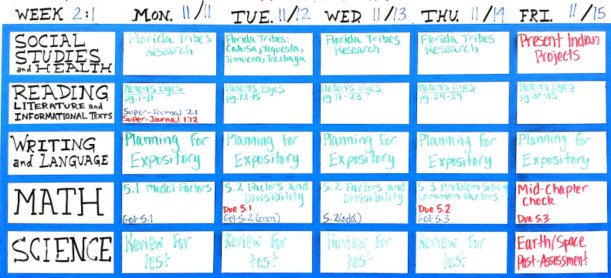 WEEK 2:1 MON. 11/11 TUE. 11/12 WED 11/13 THU. 11/14 FRI. 11/15
SOCIAL STUDIES and HEALTH
Florida Tribes
Research
Florida Tribes:
Calusa, Tequesta,
Timucua, Tocobaga
Florida Tribes
Research
Florida Tribes
Research
Present Indian
Projects
READING
LITERATURE and
INFORMATIONAL TEXTS
Helen's Eyes
pg. 1-11
Super-Journal 2:1
Super-Journal 1:12
Helen's Eyes
pg. 12-15
Helen's Eyes
pg. 16-23
Helen's Eyes
pg. 24-29
Helen's Eyes
pg. 30-35
WRITING
and LANGUAGE
Planning for
Expository
Planning for
Expository
Planning for
Expository
Planning for
Expository
Planning for
Expository
MATH
5.1 Model Factors
Get 5.1
5.2 Factors and
Divisibility
Due 5.1
Get 5.2 (even)
5.2 Factors and
Divisibility
5.2 (odd)
5.3 Problem Solving
Common Factors
Due 5.2
Get 5.3
Mid-Chapter
Check
Due 5.3
SCIENCE
Review for
test
Review for
test
Review for
test
Review for
test
Earth/Space
Post-Assessment